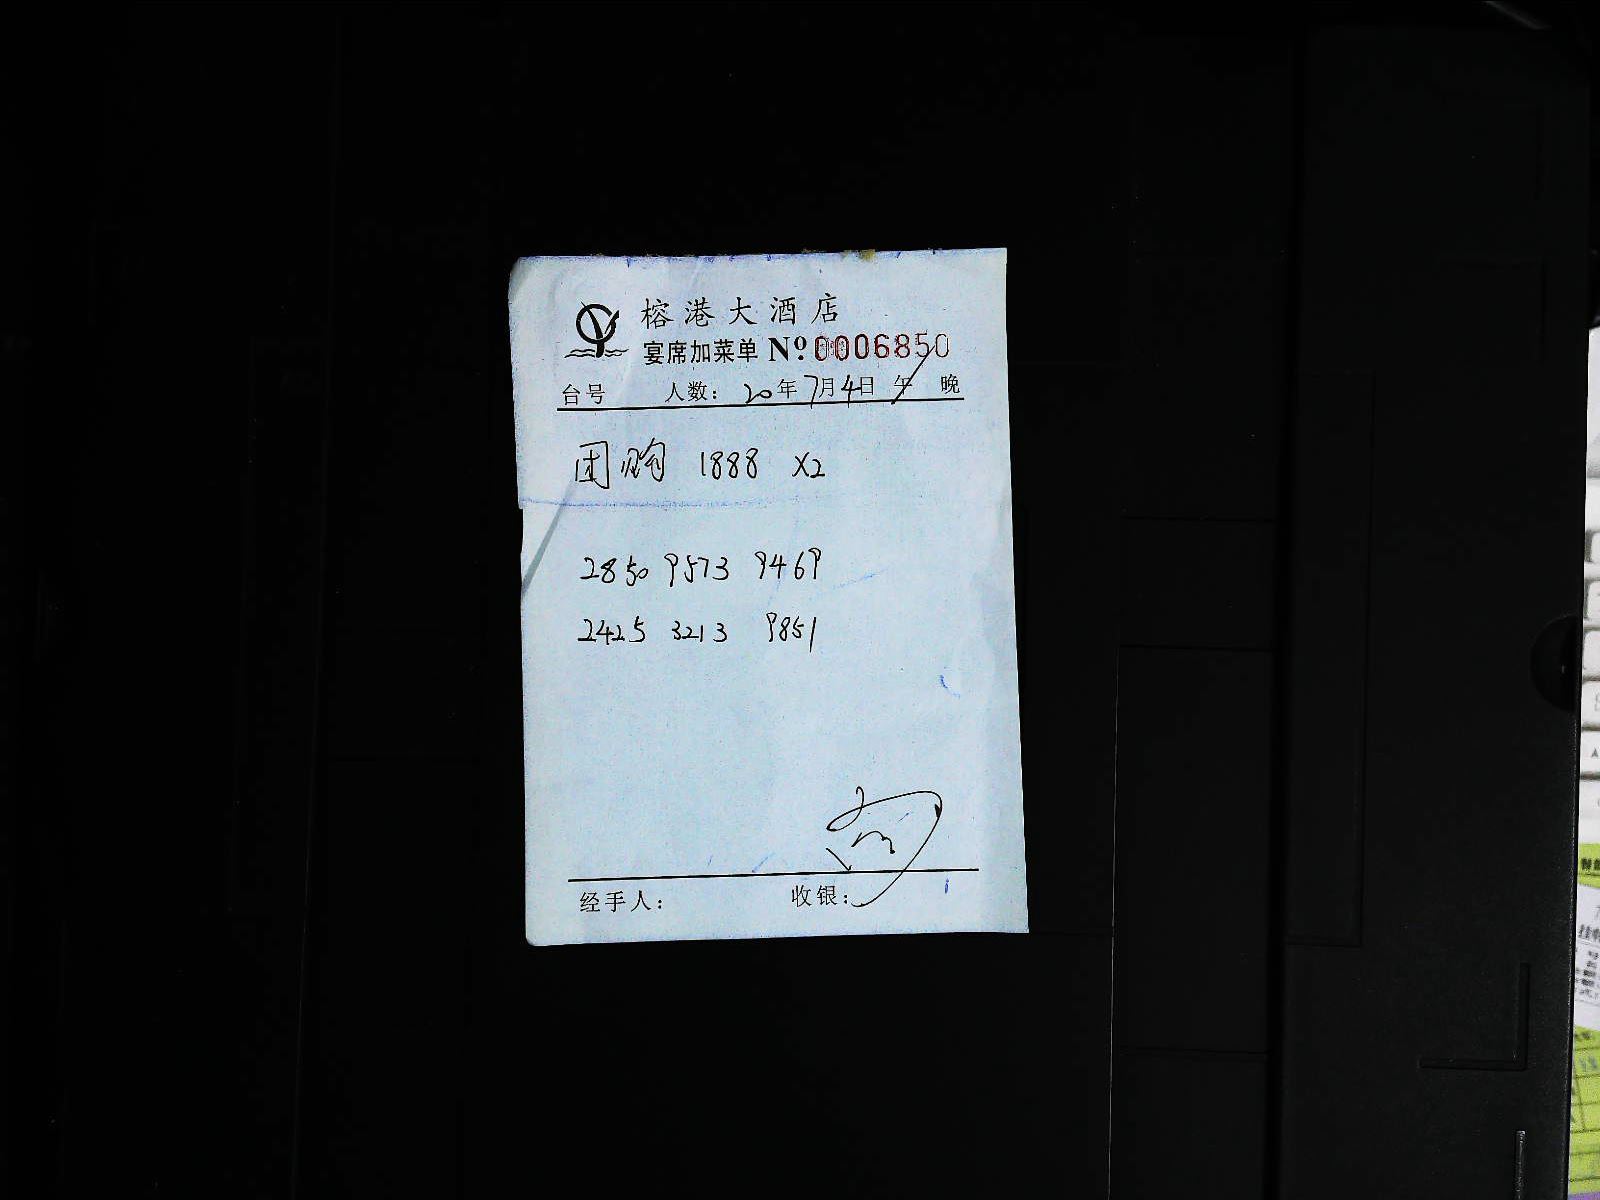 榕港大酒店
宴席加菜单 Nº 0006850
台号 人数: 20年7月4日 午 晚
团购 1888 X2
2850 9573 9469
2425 3213 9851
经手人: 收银: